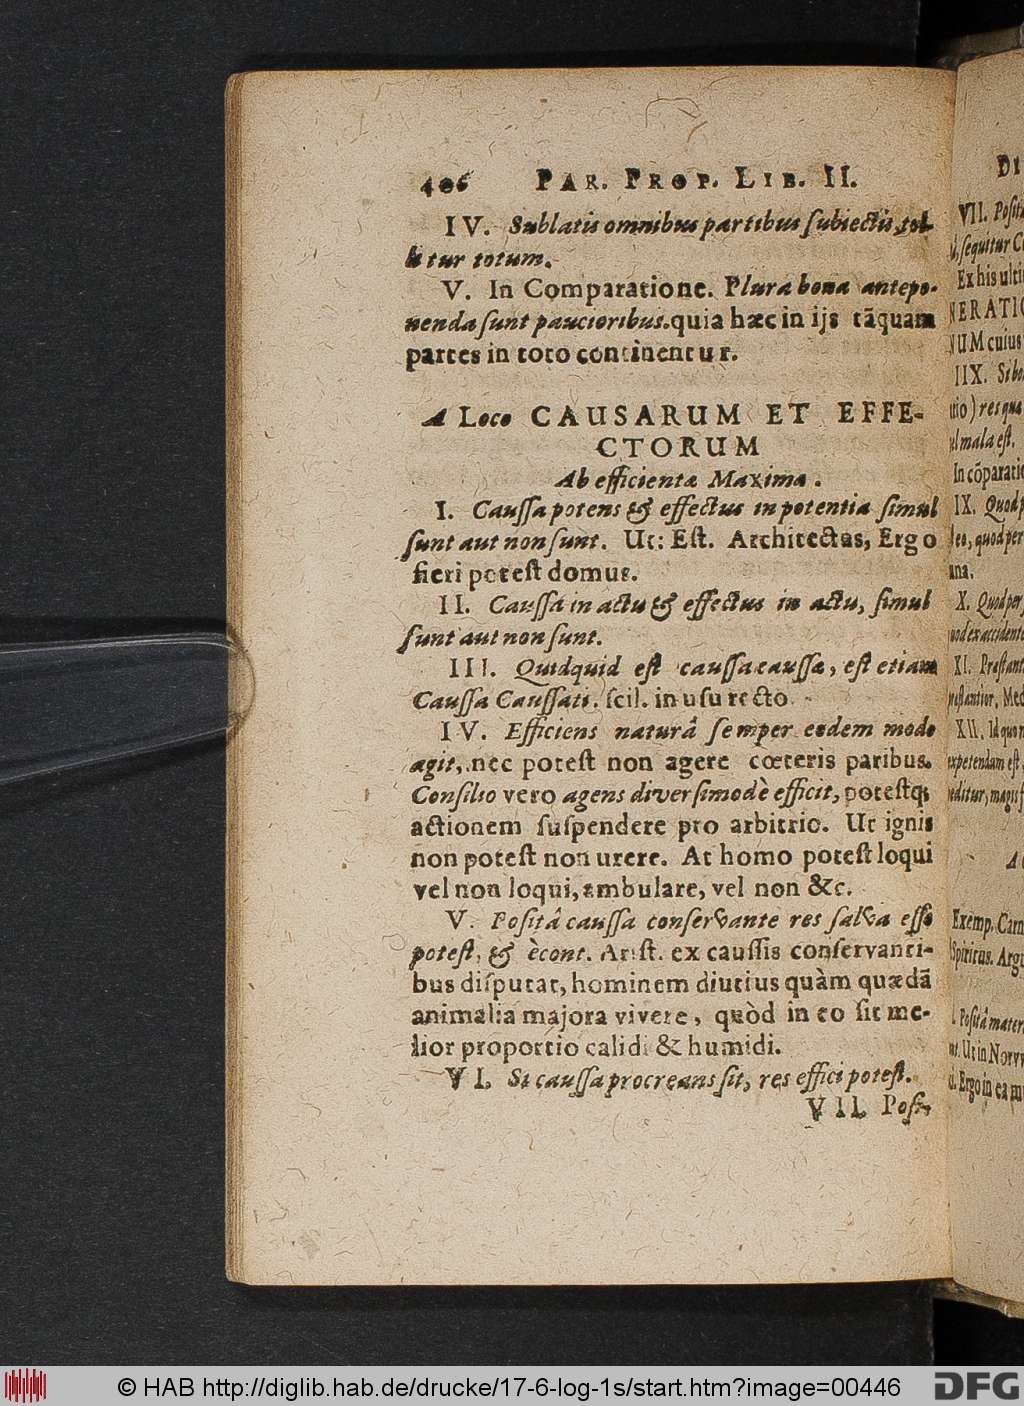 406 PAR. PROP. LIB. II.
IV. Sublatis omnibus partibus subiectis, tol-
litur totum.
V. In Comparatione. Plura bona antepo-
nenda sunt paucioribus. quia hæc in ijs tãquam
partes in toto continentur.
A Loco CAUSARUM ET EFFE-
CTORUM
Ab efficiente Maxima.
I. Caussa potens & effectus in potentia simul
sunt aut non sunt. Ut: Est. Architectus, Ergo
fieri potest domus.
II. Caussa in actu & effectus in actu, simul
sunt aut non sunt.
III. Quidquid est caussa caussæ, est etiam
Caussa Caussati. scil. in usu recto.
IV. Efficiens naturâ semper eodem modo
agit, nec potest non agere cœteris paribus.
Consilio vero agens diversimodè efficit, potestq;
actionem suspendere pro arbitrio. Ut ignis
non potest non urere. At homo potest loqui
vel non loqui, ambulare, vel non &c.
V. Positâ caussa conservante res salva esse
potest, & ècont. Arist. ex caussis conservanti-
bus disputat, hominem diutius quàm quædã
animalia majora vivere, quòd in eo sit me-
lior proportio calidi & humidi.
VI. Si caussa procreans sit, res effici potest.
VII. Posi-
DI
VII. Posita
sequitur
Ex his ulti
NERATIO
NUM cuius
IIX. Si bo
res qua
mala est.
In cõparatio
IX. Quod p
quod per
X. Quod per
XI. Præstant
Med
XII. Id quo
expetendam est
Exemp. Carn
Spiritus. Argi
I. Positâ materi
Ut in Norv
Ergo in ea m
© HAB http://diglib.hab.de/drucke/17-6-log-1s/start.htm?image=00446
DFG